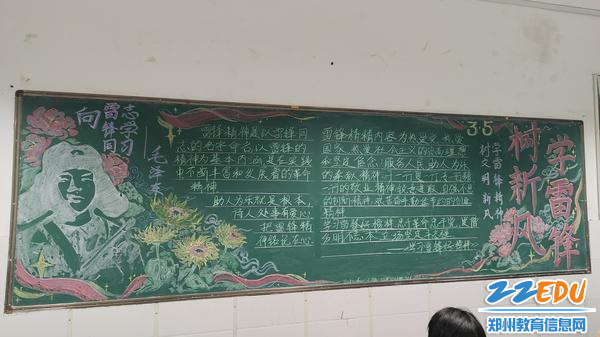 向雷锋同志学习
毛泽东
雷锋精神是以雷锋同
志的名字命名以雷锋的
精神为基本内涵在实践
中不断丰富和发展着的革命
精神
助人为乐就是根本,
待人处事有爱心
把雷锋精
神铭记在心
雷锋精神内容为热爱党、热爱
国家、热爱社会主义的崇高理想
和坚定信念;服务人民、助人为乐
的奉献精神;干一行爱一行、专一行精
一行的敬业精神;锐意进取、自强不息
的创新精神;艰苦奋斗、勤俭节约的创业
精神
学习雷锋
35
学雷锋精神
树文明新风
学雷锋
树新风
ZZEDU
郑州教育信息网